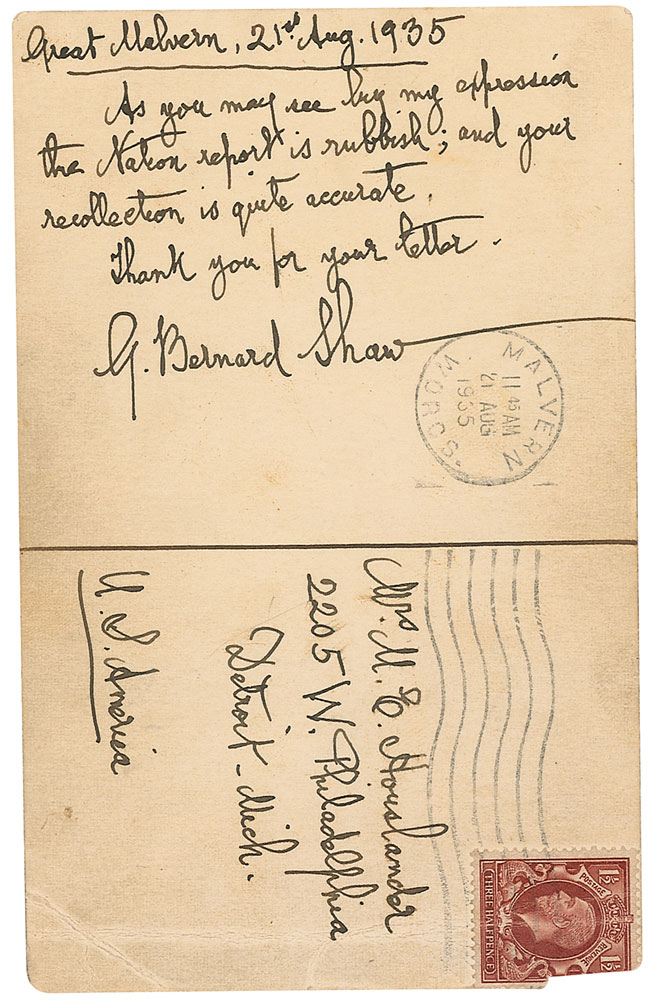 Great Malvern, 21st Aug. 1935
As you may see by my expression
the Nation report is rubbish; and your
recollection is quite accurate.
Thank you for your letter.
G. Bernard Shaw
MALVERN
WORCS.
11 45 AM
21 AUG
1935
Mrs M. E. Houslander
2205 W. Philadelphia
Detroit - Mich.
U. S. America
1½ POSTAGE REVENUE 1½
THREE HALFPENCE